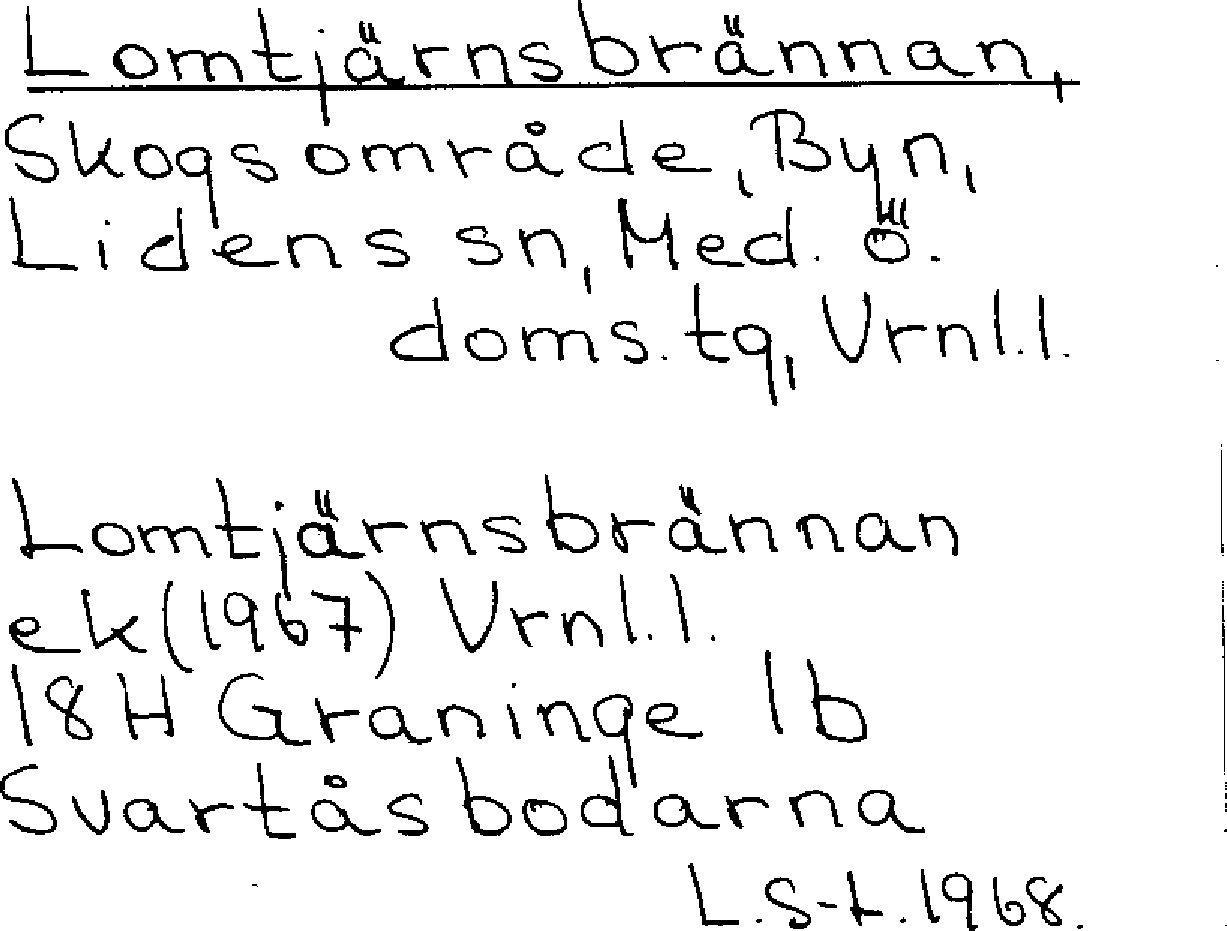 Lomtjärnsbrännan,
Skogsområde, Byn,
Lidens sn, Med. ö.
doms. tg, Vrnl.l.
Lomtjärnsbrännan
ek (1967) Vrnl.l.
18H Graninge 1b
Svartåsbodarna
L.S-t. 1968.